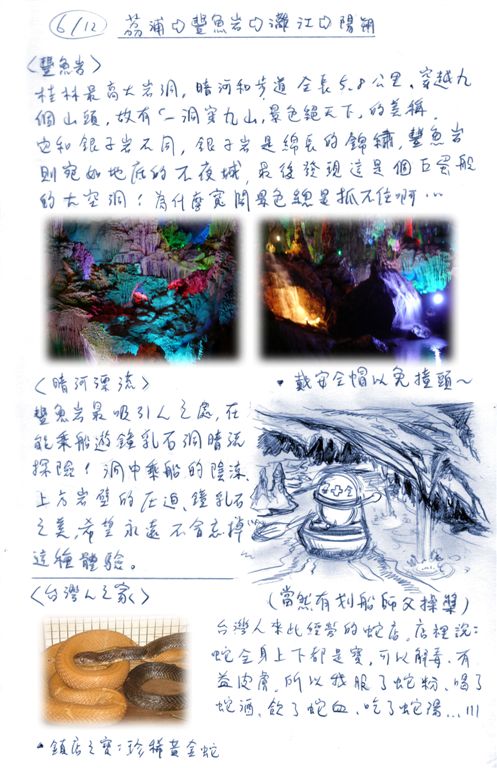 6/12 荔浦⇨豐魚岩⇨灕江⇨陽朔
〈豐魚岩〉
桂林最高大岩洞，暗河和步道全長5.8公里、穿越九
個山頭，故有「一洞穿九山，景色絕天下」的美稱．
也和銀子岩不同，銀子岩是綿長的錦繡，豐魚岩
則宛如地底的不夜城，最後發現這是個巨蛋般
的大空洞！為什麼寬闊景色總是抓不住啊…
〈暗河漂流〉
豐魚岩最吸引人之處，在
能乘船遊鐘乳石洞暗流
探險！洞中乘船的陰涼、
上方岩壁的压迫、鐘乳石
之美，希望永遠不會忘掉
這種體驗。
•戴安全帽以免撞頭～
(當然有划船師父操槳)
〈台灣人之家〉
台灣人來此經營的蛇店。店裡說：
蛇全身上下都是寶，可以解毒、有
益皮膚，所以我服了蛇粉、喝了
蛇酒、飲了蛇血、吃了蛇湯…
•鎮店之寶：珍稀黃金蛇